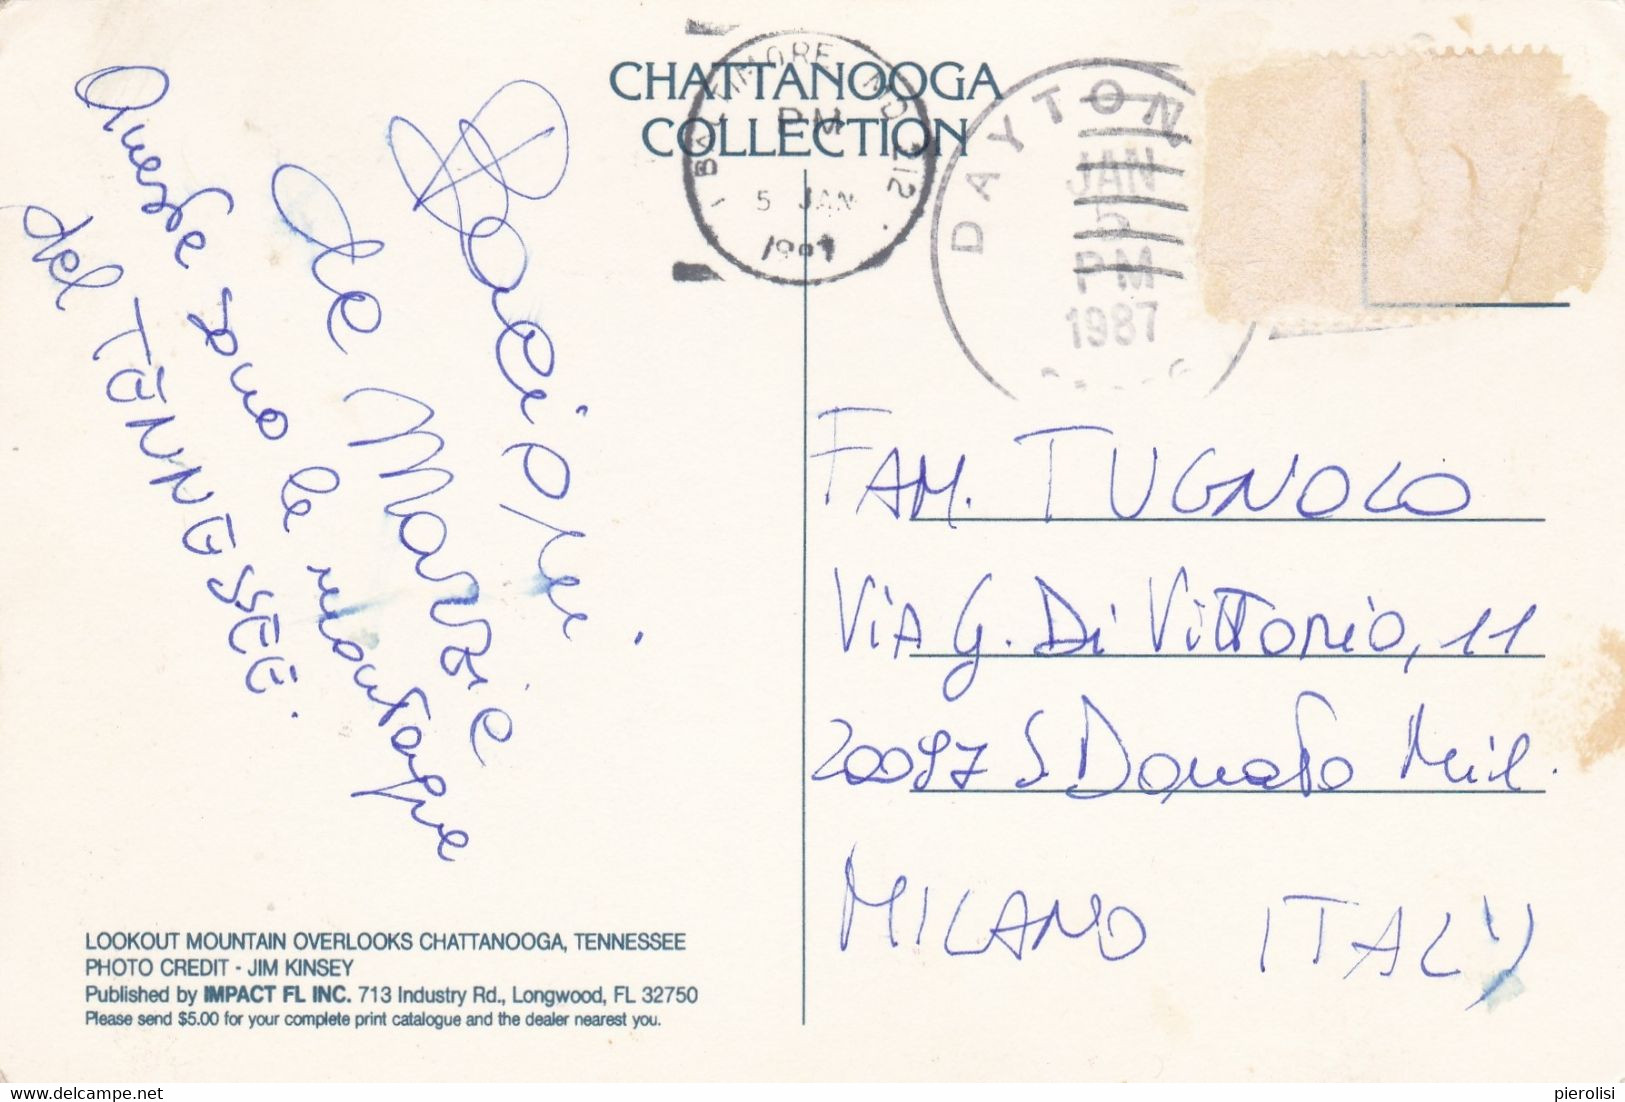 CHATTANOOGA
COLLECTION
BALTIMORE MD 212
PM
5 JAN
DAYTON
JAN
5
PM
1987
Queste sono le montagne
del TENNESSEE.
FAM. TUGNOLO
VIA G. Di Vittorio, 11
20097 S. Donato Mil.
MILANO ITALY
LOOKOUT MOUNTAIN OVERLOOKS CHATTANOOGA, TENNESSEE
PHOTO CREDIT - JIM KINSEY
Published by IMPACT FL INC. 713 Industry Rd., Longwood, FL 32750
Please send $5.00 for your complete print catalogue and the dealer nearest you.
pierolisi